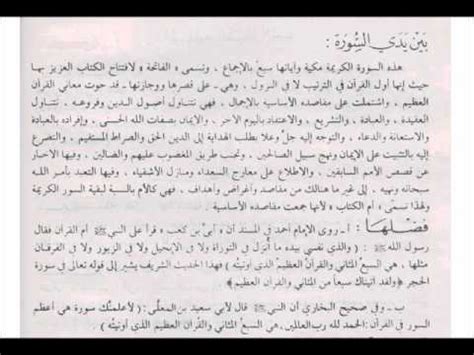 بَيْن يَدَيْ السُّورَة :
هذه السورة الكريمة مكية وآياتها سبعٌ بالإجماع ، وتسمى « الفاتحة » لافتتاح الكتاب العزيز بها
حيث إنها أول القرآن في الترتيب لا في النزول ، وهي - على قصرها ووجازتها - قد حوت معاني القرآن
العظيم ، واشتملت على مقاصده الأساسية بالإجمال ، فهي تتناول أصول الدين وفروعه ، تتناول
العقيدة ، والعبادة ، والتشريع ، والاعتقاد باليوم الآخر ، والإيمان بصفات الله الحسنى ، وإفراده بالعبادة
والاستعانة والدعاء ، والتوجه إليه جلَّ وعلا بطلب الهداية إلى الدين الحق والصراط المستقيم ، والتضرع
إليه بالتثبيت على الإيمان ونهج سبيل الصالحين ، وتجنب طريق المغضوب عليهم والضالين ، وفيها الاخبار
عن قصص الأمم السابقين ، والاطلاع على معارج السعداء ومنازل الأشقياء ، وفيها التعبد بأمر الله
سبحانه ونهيه ، إلى غير ما هنالك من مقاصد وأغراض وأهداف ، فهي كالأم بالنسبة لبقية السور الكريمة
ولهذا تسمَّى « أم الكتاب » لأنها جمعت مقاصده الأساسية .
فَضْلُهَا : أ - روى الإمام أحمد في المسند أن « أبيَّ بن كعب » قرأ على النبي ﷺ أم القرآن فقال
رسول الله ﷺ : ( والذي نفسي بيده ما أُنزل في التوراة ولا في الإنجيل ولا في الزبور ولا في الفرقان
مثلها ، هي السبعُ المثاني والقرآن العظيم الذي أوتيتُه ) فهذا الحديث الشريف يشير إلى قوله تعالى في سورة
الحجر ﴿ولقد آتيناك سبعاً من المثاني والقرآن العظيم﴾ .
ب - وفي صحيح البخاري أن النبي ﷺ قال لأبي سعيد بن المعلَّى : ( لأعلمنَّك سورة هي أعظم
السور في القرآن : الحمد لله رب العالمين , هي السبعُ المثاني والقرآن العظيم الذي أوتيتُه )